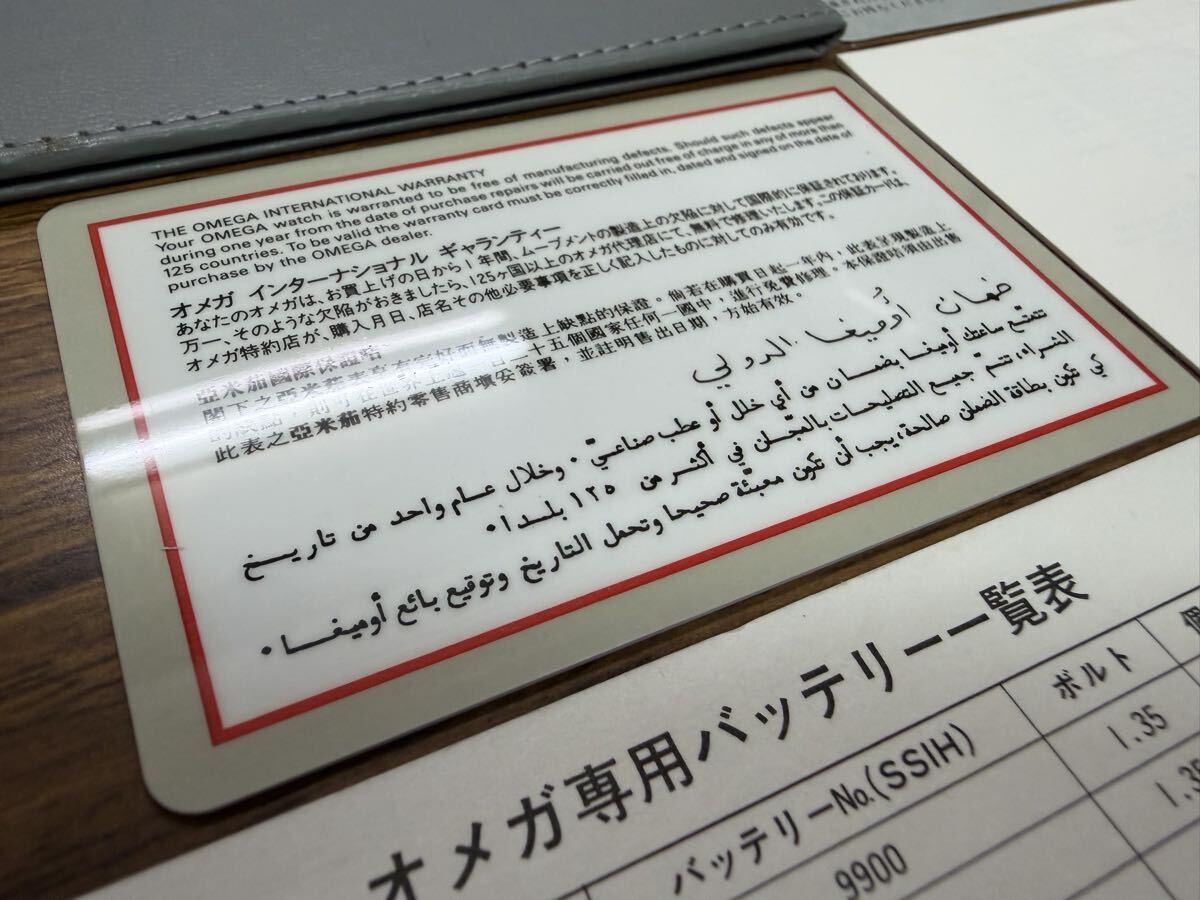 THE OMEGA INTERNATIONAL WARRANTY
Your OMEGA watch is warranted to be free of manufacturing defects. Should such defects appear
during one year from the date of purchase repairs will be carried out free of charge in any of more than
125 countries. To be valid the warranty card must be correctly filled in, dated and signed on the date of
purchase by the OMEGA dealer.
オメガ インターナショナル ギャランティー
あなたのオメガは、お買上げの日から1年間、ムーブメントの製造上の欠陥に対して国際的に保証されております。
万一、そのような欠陥がおきましたら、125ヶ国以上のオメガ代理店にて、無料で修理いたします。この保証カードは、
オメガ特約店が、購入月日、店名その他必要事項を正しく記入したものに対してのみ有効です。
亞米茄國際保證咭
閣下之亞米茄表享有完好而無製造上缺點的保證。倘若在購買日起一年內，此表呈現製造上
的缺點，則可在世界上過一百二十五個國家任何一國中，進行免費修理。本保證咭須由出售
此表之亞米茄特約零售商填妥簽署，並註明售出日期，方始有效。
ضمان أوميغا الدولي
تتمتع ساعتك أوميغا بضمان من أي خلل أو عطب صناعيّ. وخلال عام واحد من تاريخ
الشراء، تتم جميع التصليحات بالمجّان في أكثر من ١٢٥ بلدا.
كي تكون بطاقة الضمان صالحة، يجب أن تكون معبّئة صحيحا وتحمل التاريخ وتوقيع بائع أوميغا.
オメガ専用バッテリー一覧表
バッテリーNo.(SSIH)
ボルト
9900
1.35
1.35